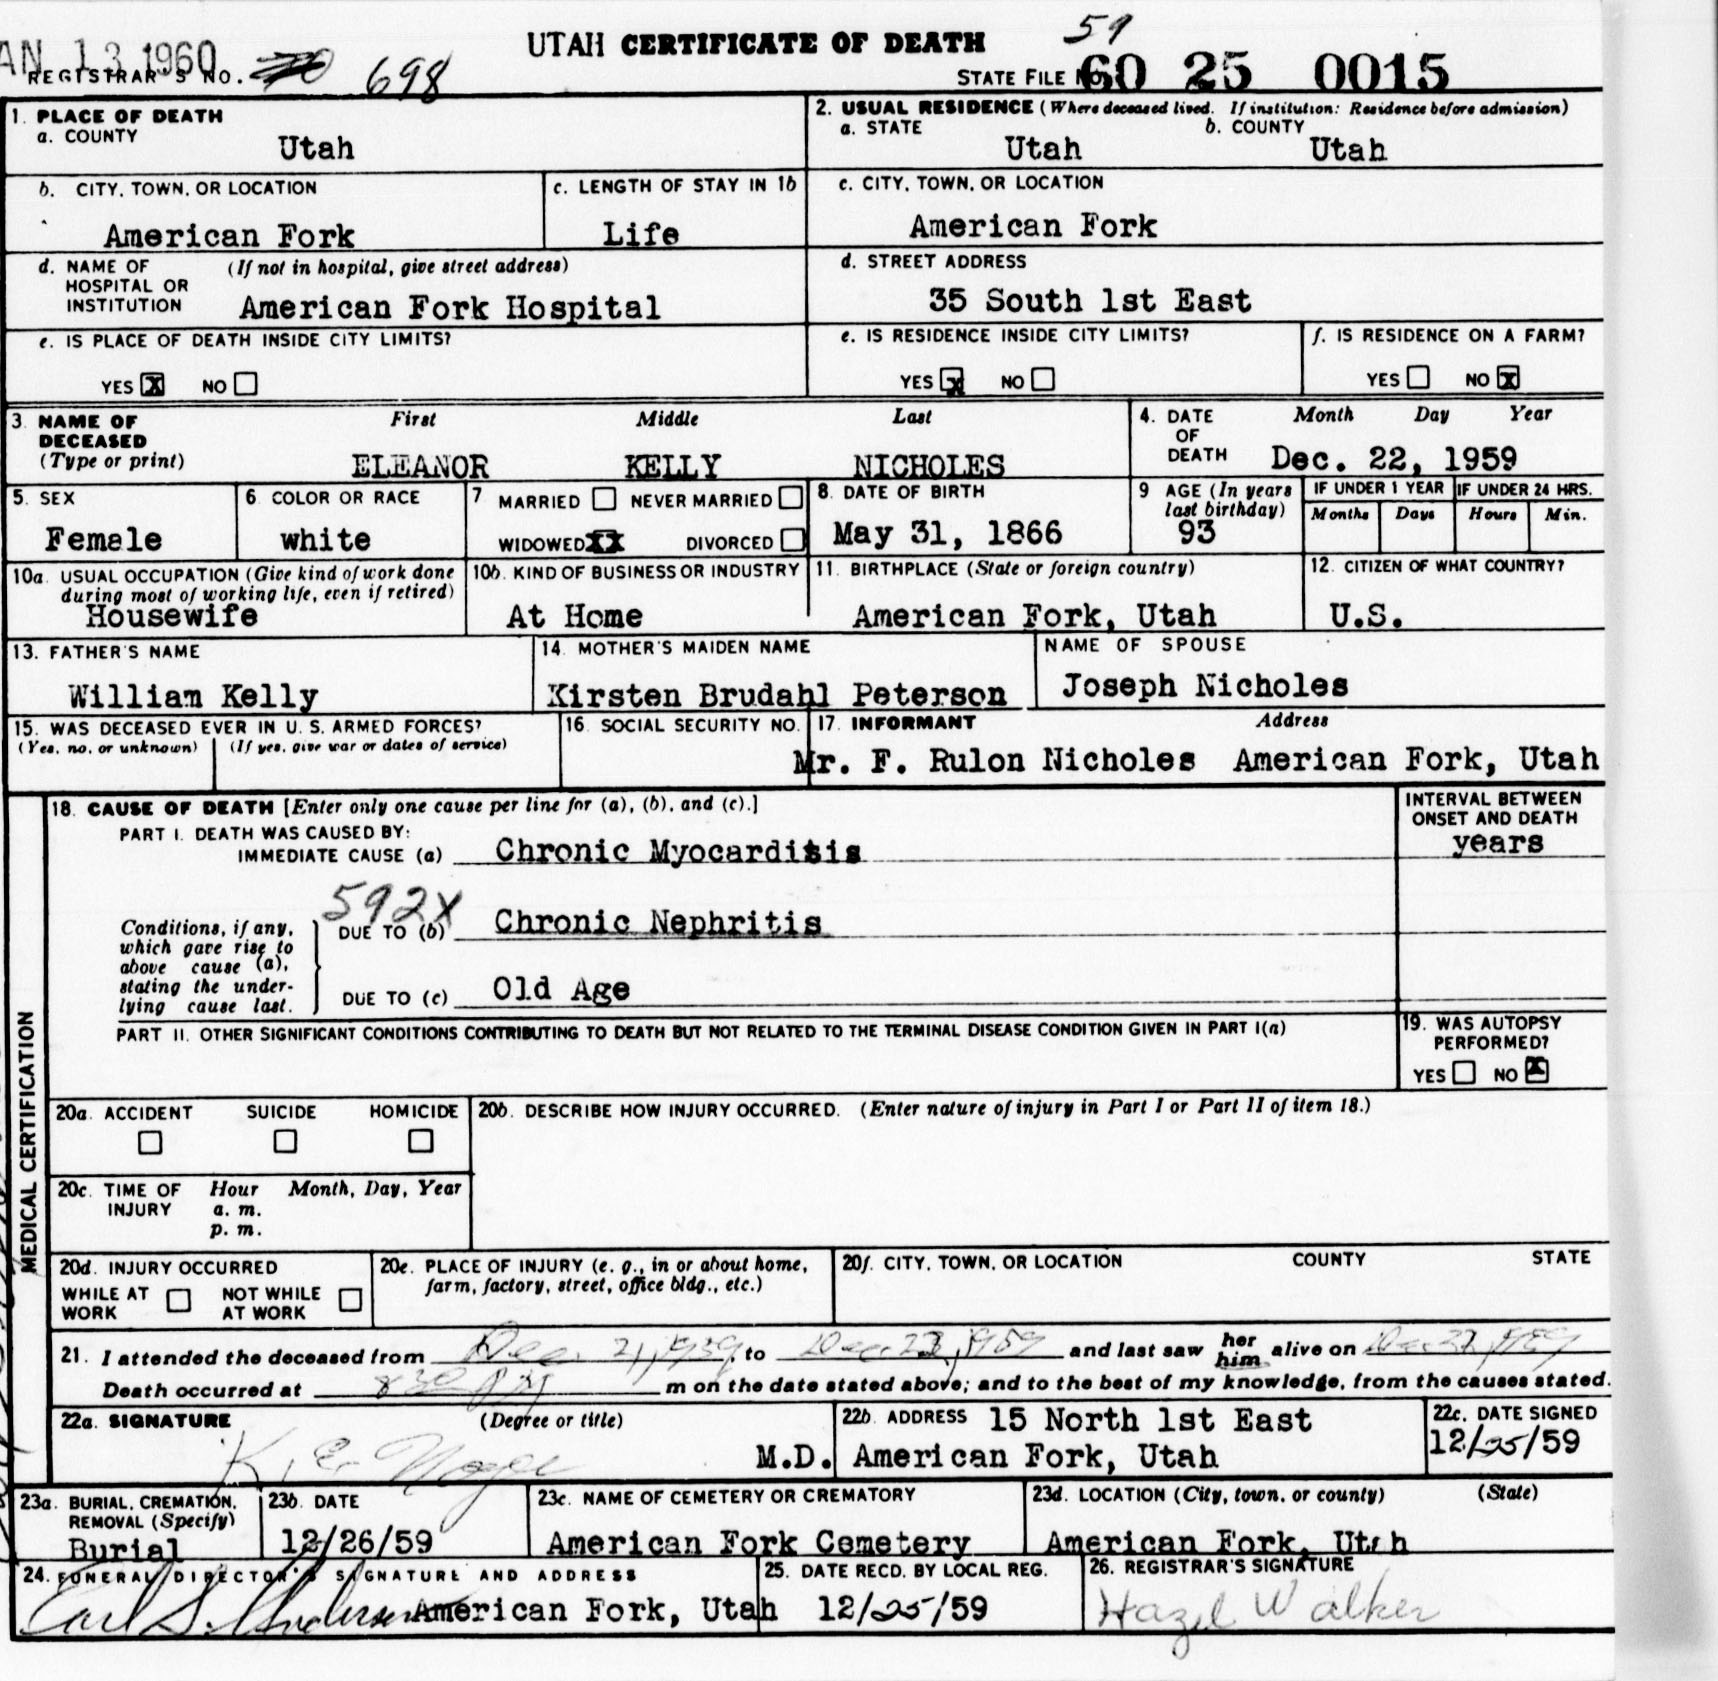 AN 13 1960
UTAH CERTIFICATE OF DEATH
59
REGISTRAR'S NO. 698
STATE FILE NO. 60 25 0015
1. PLACE OF DEATH
a. COUNTY
Utah
2. USUAL RESIDENCE (Where deceased lived. If institution: Residence before admission)
a. STATE
Utah
b. COUNTY
Utah
b. CITY, TOWN, OR LOCATION
American Fork
c. LENGTH OF STAY IN 1b
Life
c. CITY, TOWN, OR LOCATION
American Fork
d. NAME OF HOSPITAL OR INSTITUTION
(If not in hospital, give street address)
American Fork Hospital
d. STREET ADDRESS
35 South 1st East
e. IS PLACE OF DEATH INSIDE CITY LIMITS?
YES X NO
e. IS RESIDENCE INSIDE CITY LIMITS?
YES X NO
f. IS RESIDENCE ON A FARM?
YES NO X
3. NAME OF DECEASED
(Type or print)
First Middle Last
ELEANOR KELLY NICHOLES
4. DATE OF DEATH
Month Day Year
Dec. 22, 1959
5. SEX
Female
6. COLOR OR RACE
white
7 MARRIED NEVER MARRIED
WIDOWED XX DIVORCED
8. DATE OF BIRTH
May 31, 1866
9 AGE (In years last birthday)
93
IF UNDER 1 YEAR
Months Days
IF UNDER 24 HRS.
Hours Min.
10a. USUAL OCCUPATION (Give kind of work done during most of working life, even if retired)
Housewife
10b. KIND OF BUSINESS OR INDUSTRY
At Home
11. BIRTHPLACE (State or foreign country)
American Fork, Utah
12. CITIZEN OF WHAT COUNTRY?
U.S.
13. FATHER'S NAME
William Kelly
14. MOTHER'S MAIDEN NAME
Kirsten Brudahl Peterson
NAME OF SPOUSE
Joseph Nicholes
15. WAS DECEASED EVER IN U. S. ARMED FORCES?
(Yes, no, or unknown) (If yes, give war or dates of service)
16. SOCIAL SECURITY NO.
17. INFORMANT Address
Mr. F. Rulon Nicholes American Fork, Utah
MEDICAL CERTIFICATION
18. CAUSE OF DEATH [Enter only one cause per line for (a), (b), and (c).]
PART I. DEATH WAS CAUSED BY:
IMMEDIATE CAUSE (a) Chronic Myocarditis
INTERVAL BETWEEN ONSET AND DEATH
years
592X
Conditions, if any, which gave rise to above cause (a), stating the underlying cause last.
DUE TO (b) Chronic Nephritis
DUE TO (c) Old Age
PART II. OTHER SIGNIFICANT CONDITIONS CONTRIBUTING TO DEATH BUT NOT RELATED TO THE TERMINAL DISEASE CONDITION GIVEN IN PART I(a)
19. WAS AUTOPSY PERFORMED?
YES NO X
20a. ACCIDENT SUICIDE HOMICIDE
20b. DESCRIBE HOW INJURY OCCURRED. (Enter nature of injury in Part I or Part II of item 18.)
20c. TIME OF INJURY
Hour Month, Day, Year
a. m.
p. m.
20d. INJURY OCCURRED
WHILE AT WORK NOT WHILE AT WORK
20e. PLACE OF INJURY (e. g., in or about home, farm, factory, street, office bldg., etc.)
20f. CITY, TOWN, OR LOCATION COUNTY STATE
21. I attended the deceased from Dec. 21, 1959, to Dec 22, 1959 and last saw her him alive on Dec 22, 1959
Death occurred at 8 30 PM m on the date stated above; and to the best of my knowledge, from the causes stated.
22a. SIGNATURE (Degree or title)
K. E. M.D.
22b. ADDRESS 15 North 1st East
American Fork, Utah
22c. DATE SIGNED
12/25/59
23a. BURIAL, CREMATION, REMOVAL (Specify)
Burial
23b. DATE
12/26/59
23c. NAME OF CEMETERY OR CREMATORY
American Fork Cemetery
23d. LOCATION (City, town, or county) (State)
American Fork, Utah
24. FUNERAL DIRECTOR'S SIGNATURE AND ADDRESS
Carl S. Anderson American Fork, Utah
25. DATE RECD. BY LOCAL REG.
12/25/59
26. REGISTRAR'S SIGNATURE
Hazel Walker